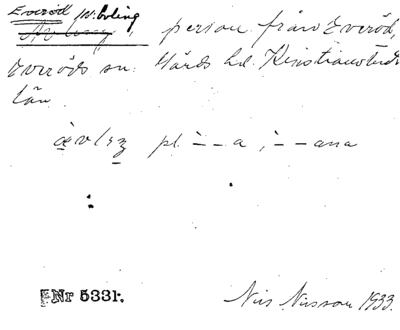 Everöd /N.boling
person från Everöd,
Everöds sn. Härds hd. Kristianstads
län.
pl. – – a ; – – ana
F Nr 5331.
Nils Nilsson 1933.